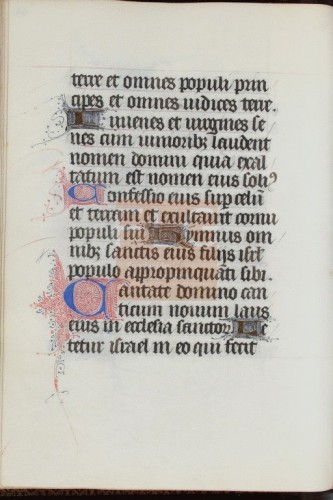 terre et omnes populi prin
cipes et omnes iudices terre.
Iuuenes et uirgines se
nes cum iuniorib; laudent
nomen domini quia exal
tatum est nomen eius soli9
Confessio eius sup celum
et terram et exaltauit cornu
populi sui Hymnus om
nib; sanctis eius filijs isrl
populo appropinquanti sibi.
Cantate domino can
ticum nouum laus
eius in ecclesia sanctor. Le
tetur israel in eo qui fecit